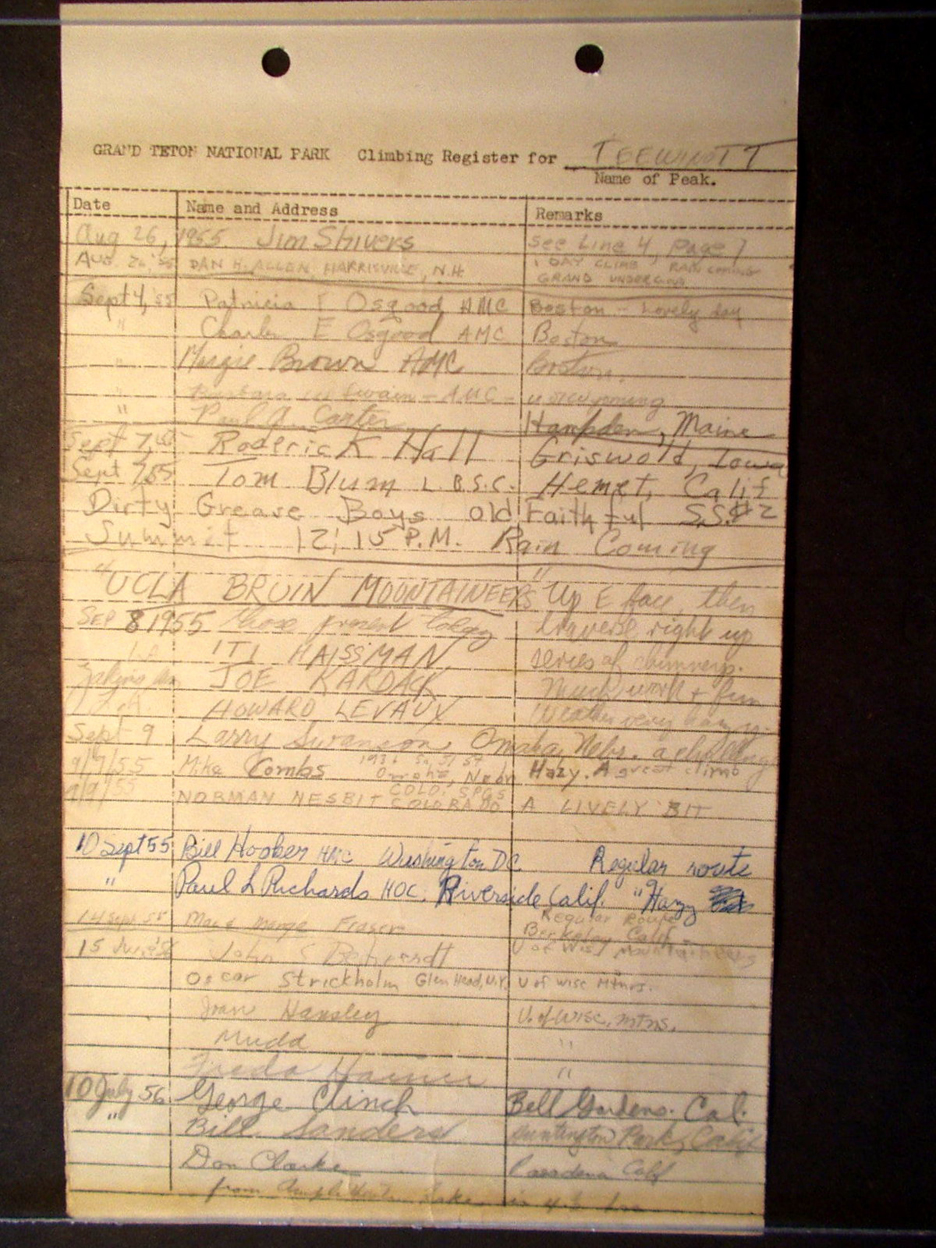 GRAND TETON NATIONAL PARK Climbing Register for TEEWINOTT
Name of Peak.
Date Name and Address Remarks
Aug 26, 1955 Jim Shivers See Line 4, Page 7
Aug. 26 '55 DAN H. ALLEN, HARRISVILLE, N.H. 1 DAY CLIMB RAIN COMING
GRAND UNDERCLING
Sept 4, '55 Patricia F Osgood AMC Boston - Lovely day
" Charles E Osgood AMC Boston
" Margie Brown AMC Boston.
Barbara Swain - AMC - 
" Paul A. Carter Hampden, Maine
Sept 7, Roderick Hall Griswold, Iowa
Sept 7, 55 Tom Blum L.B.S.C. Hemet, Calif
Dirty Grease Boys old Faithful S.S. #2
Summit 12:15 P.M. Rain Coming
"UCLA BRUIN MOUNTAINEERS" Up E face, then
SEP 8 1955 those present today traverse right up
ITI HAISSMAN, series of chimneys.
JOE KARDACK Much work + fun
HOWARD LEVAUX Weather very hazy.
Sept 9 Larry Swanson, Omaha, Nebr. a challenge
9/9/55 Mike Combs Omaha, Nebr Hazy. A great climb
9/9/55 NORMAN NESBIT COLO. SPGS COLORADO A LIVELY BIT
10 Sept 55 Bill Hooker HMC Washington DC Regular route
" Paul L Richards HOC. Riverside Calif. " Hazy
14 Sept. 55 Marge Fraser Regular Route
Berkeley Calif
15 John S Behrendt U of Wisc Mountaineers
Oscar Strickholm Glen Head, N.Y. U of Wisc Mtnrs.
Jean Hansley U. of Wisc. mtns.
Mudd "
Freda "
10 July 56 George Clinch Bell Gardens. Cal.
" Bill Sanders Huntington Park, Calif
Don Clarke Pasadena Calif
from Lake in 4